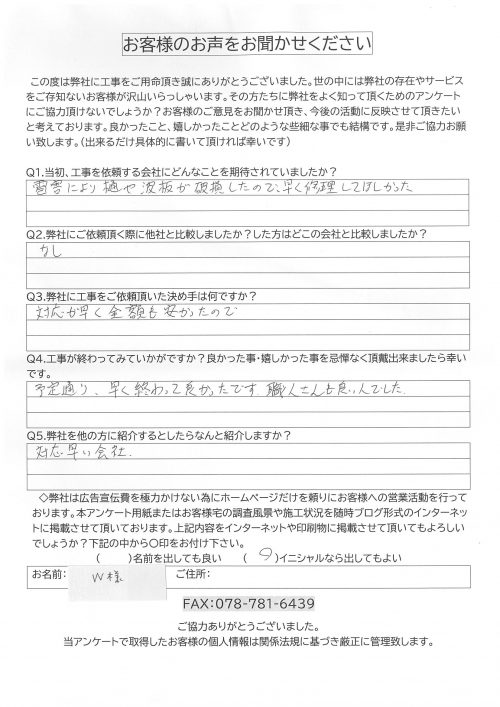 お客様のお声をお聞かせください
この度は弊社に工事をご用命頂き誠にありがとうございました。世の中には弊社の存在やサービス
をご存知ないお客様が沢山いらっしゃいます。その方たちに弊社をよく知って頂くためのアンケート
にご協力頂けないでしょうか？お客様のご意見をお聞かせ頂き、今後の活動に反映させて頂きたい
と考えております。良かったこと、嬉しかったことどのような些細な事でも結構です。是非ご協力お願
い致します。（出来るだけ具体的に書いて頂ければ幸いです）
Q1.当初、工事を依頼する会社にどんなことを期待されていましたか？
雹害により樋や波板が破損したので、早く修理してほしかった
Q2.弊社にご依頼頂く際に他社と比較しましたか？した方はどこの会社と比較しましたか？
なし
Q3.弊社に工事をご依頼頂いた決め手は何ですか？
対応が早く金額も安かったので
Q4.工事が終わってみていかがですか？良かった事・嬉しかった事を忌憚なく頂戴出来ましたら幸い
です。
予定通り、早く終わって良かったです。職人さんも良い人でした。
Q5.弊社を他の方に紹介するとしたらなんと紹介しますか？
対応早い会社.
◇弊社は広告宣伝費を極力かけない為にホームページだけを頼りにお客様への営業活動を行って
おります。本アンケート用紙またはお客様宅の調査風景や施工状況を随時ブログ形式のインターネッ
トに掲載させて頂いております。上記内容をインターネットや印刷物に掲載させて頂いてもよろしい
でしょうか？下記の中から〇印をお付け下さい。
（　　）名前を出しても良い　（ 〇 ）イニシャルなら出してもよい
お名前： W様 ご住所：
FAX：078-781-6439
ご協力ありがとうございました。
当アンケートで取得したお客様の個人情報は関係法規に基づき厳正に管理致します。